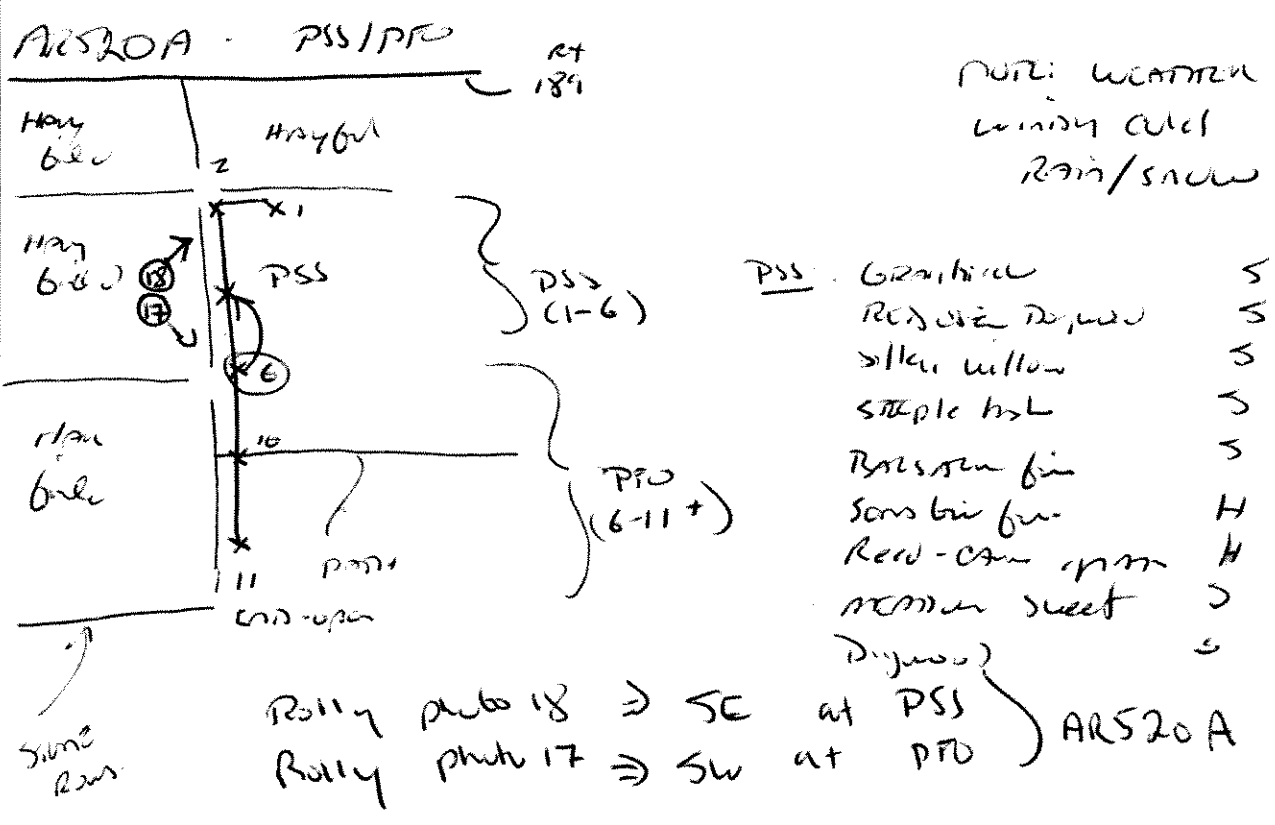 AR520A - PSS/PFO
Rt
189
NOTE: WEATHER
windy cold
RAIN/SNOW
Hay
field
Hayfield
2
1
Hay
field
18
17
PSS
PSS
(1-6)
6
Hay
field
10
PFO
(6-11+)
PATH
11
END-open
Stone
Rows
PSS: Gray birch S
RED osier Dogwood S
silky willow S
steeple bush S
BALSAM fir S
Sensitive fern H
Reed-canary grass H
MEADOW sweet S
Dogwood S
Rolly photo 18 ⇒ SE at PSS
Rolly photo 17 ⇒ SW at PFO
AR520A